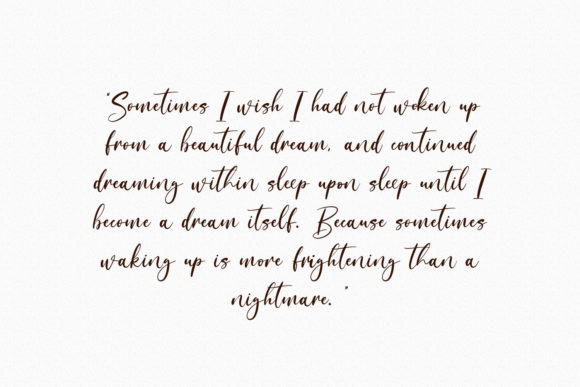 "Sometimes I wish I had not woken up
from a beautiful dream, and continued
dreaming within sleep upon sleep until I
become a dream itself. Because sometimes
waking up is more frightening than a
nightmare."